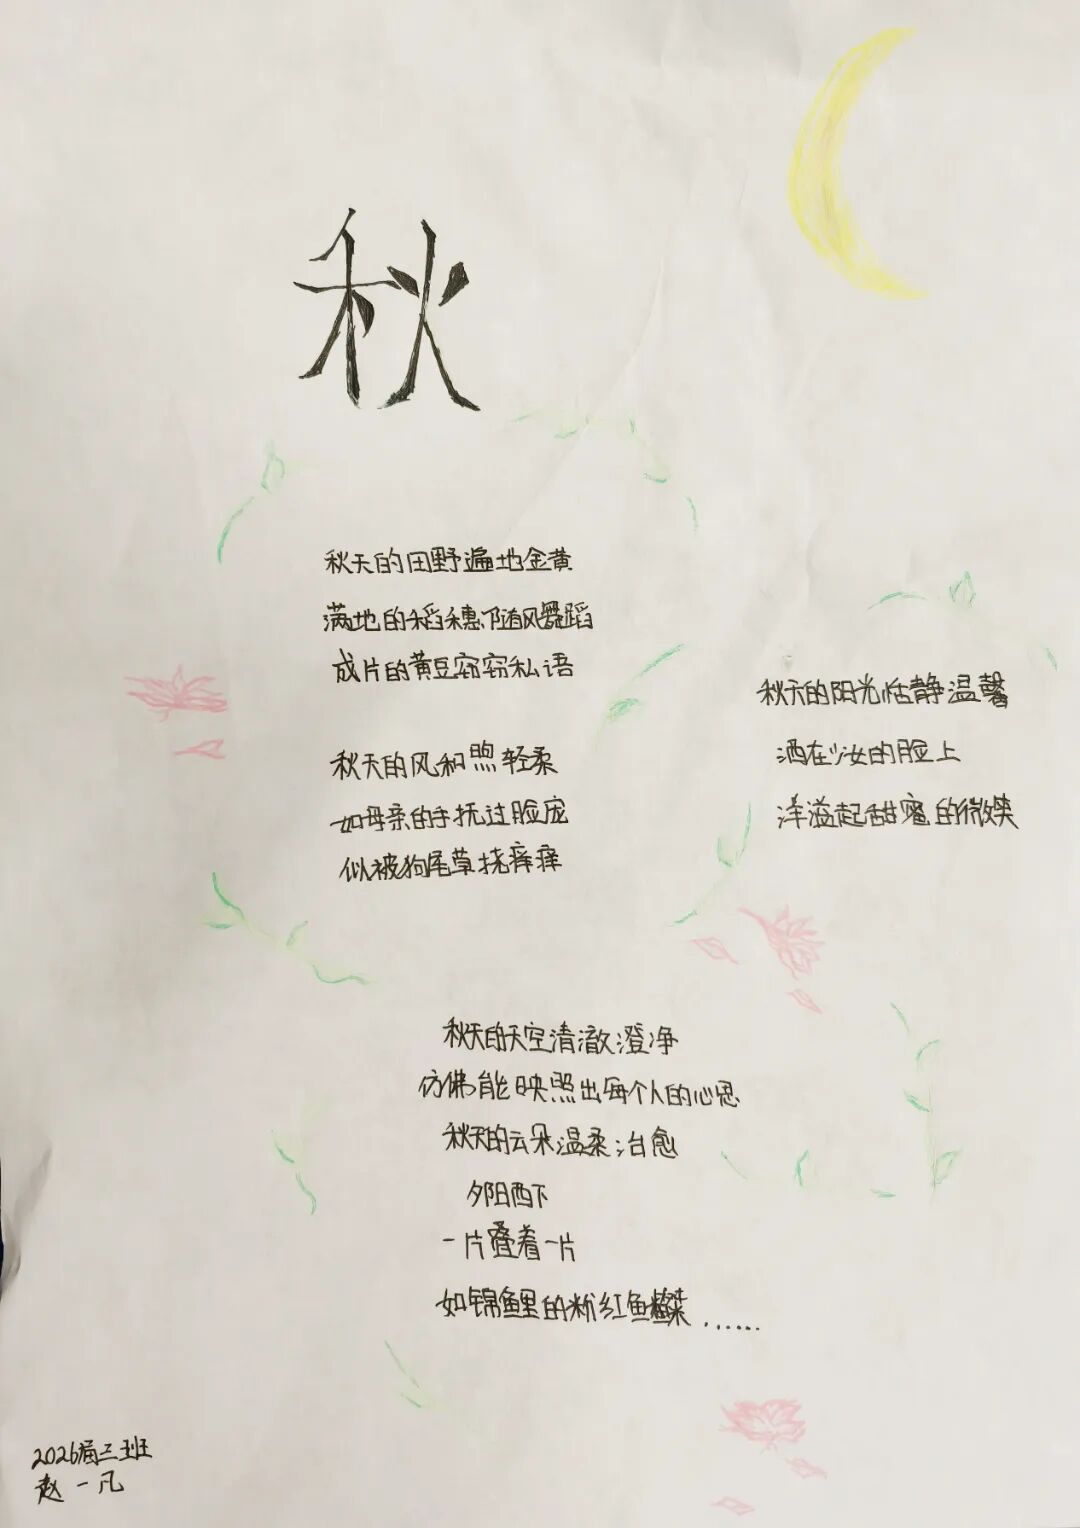 秋
秋天的田野遍地金黄
满地的稻穗随风舞蹈
成片的黄豆窃窃私语
秋天的风和煦轻柔
如母亲的手抚过脸庞
似被狗尾草挠痒痒
秋天的阳光恬静温馨
洒在少女的脸上
洋溢起甜蜜的微笑
秋天的天空清澈澄净
仿佛能映照出每个人的心思
秋天的云朵温柔治愈
夕阳西下
一片叠着一片
如锦鲤的粉红鱼鳞……
2026届三班
赵一凡